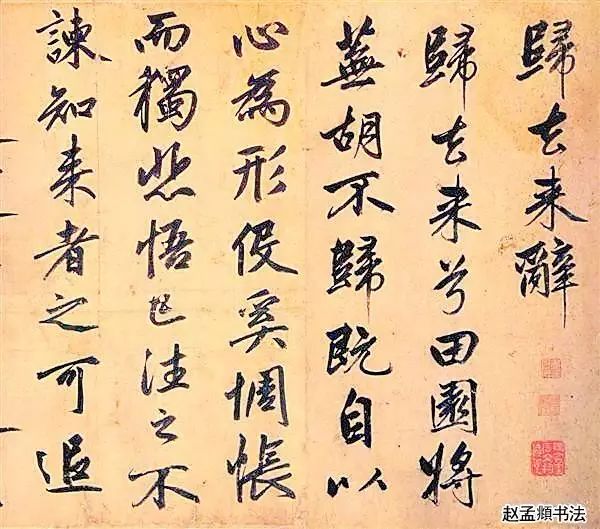 歸去来辭
歸去来兮田園將
蕪胡不歸既自以
心為形役奚惆悵
而獨悲悟已往之不
諫知来者之可追
赵孟頫书法